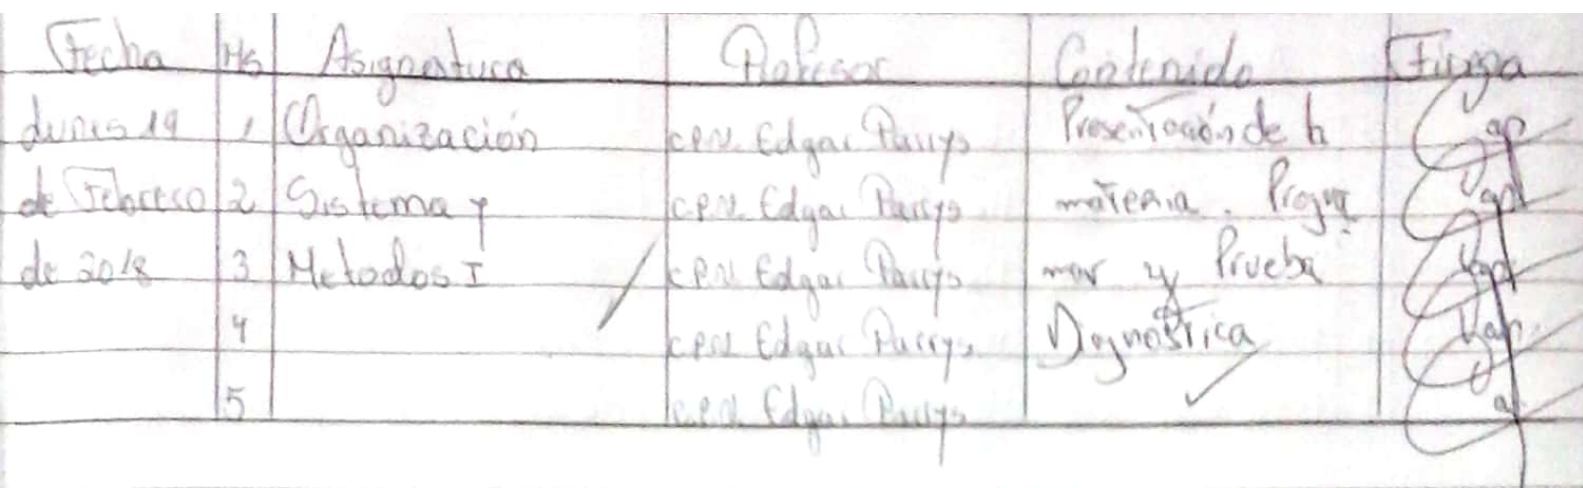 Fecha Hs Asignatura Profesor Contenido Firma
Lunes 19 1 Organización C.P.N. Edgar Parrys Presentación de la
de Febrero 2 Sistema y C.P.N. Edgar Parrys materia. Progra
de 2018 3 Metodos I C.P.N. Edgar Parrys mar y Prueba
4 C.P.N. Edgar Parrys Diagnóstica
5 C.P.N. Edgar Parrys